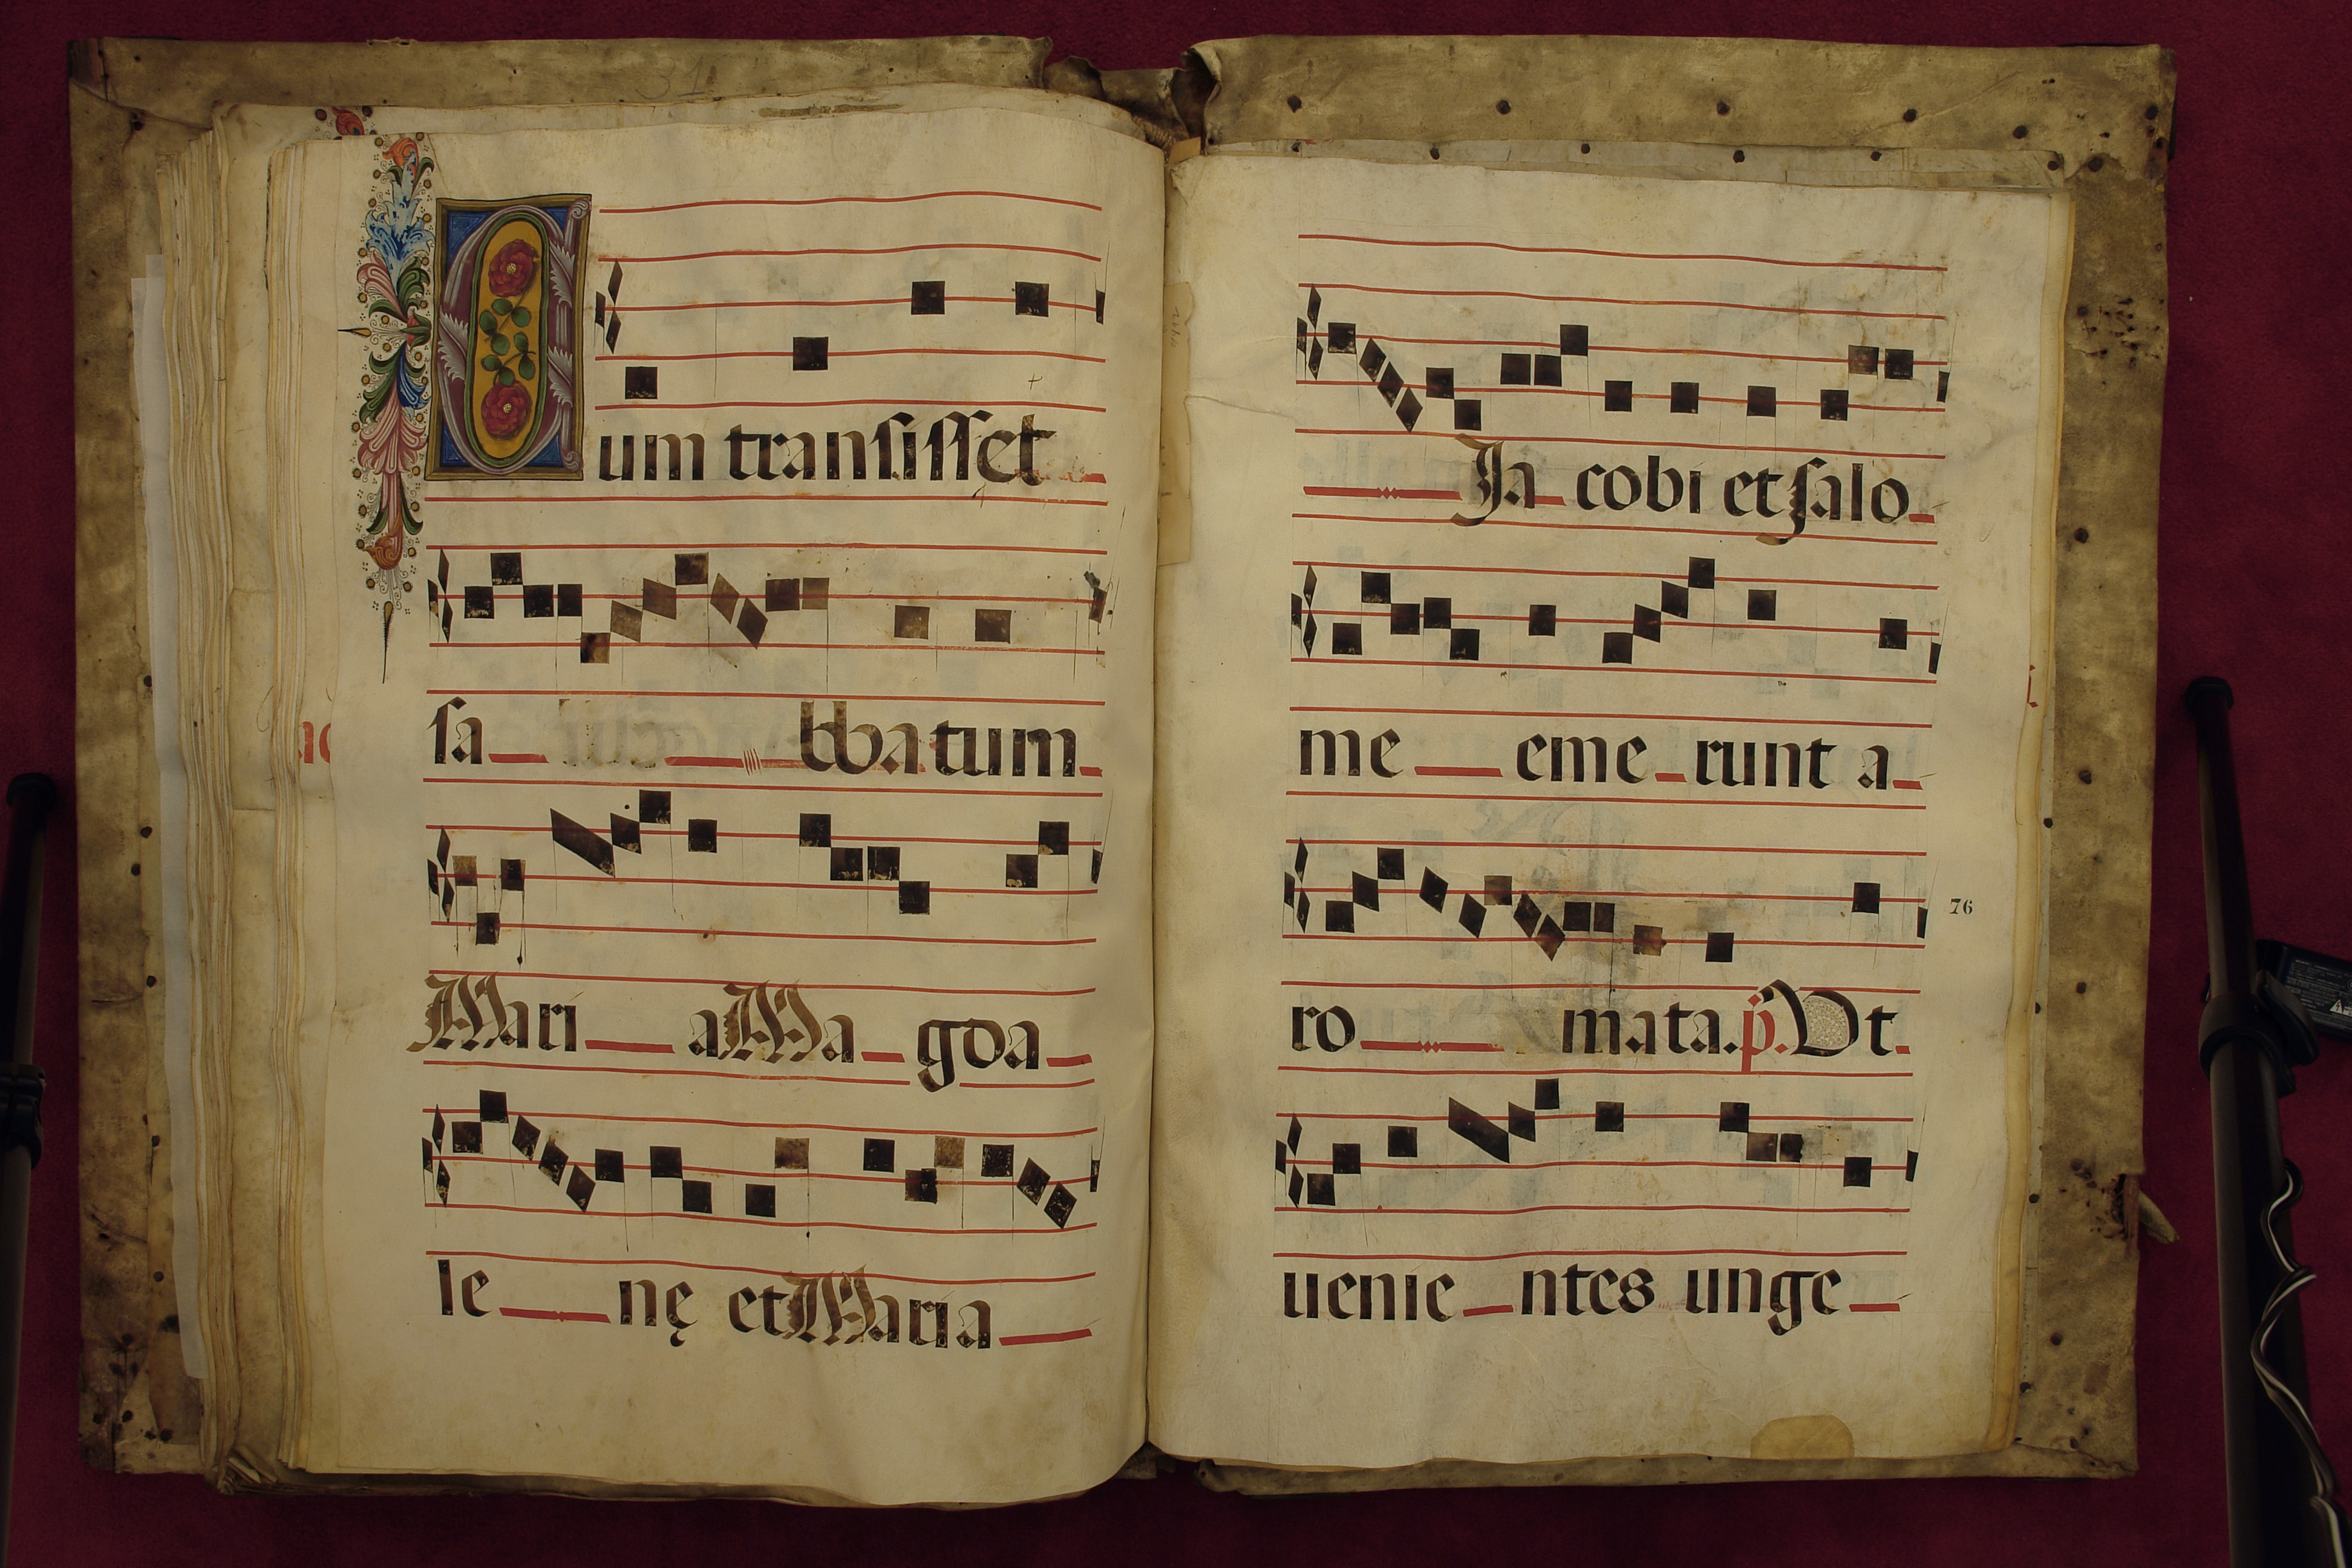 Cum transisset
sa bbatum
Mari a Ma gda
le nę et Maria
Ja cobi et salo
me eme runt a
76
ro mata. p. Ut
uenie ntes unge